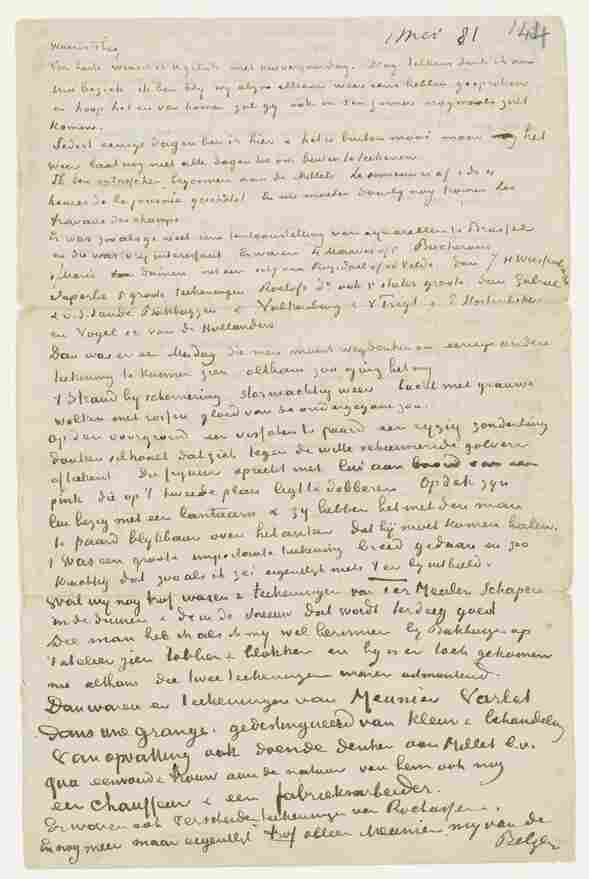 1 Mei 81
144
Waarde Theo
Van harte wensch ik U geluk met Uw verjaardag. Nog telkens denk ik aan
Uw bezoek ik ben bly wy alzoo elkaar weer eens hebben gesproken
en hoop het er van komen zal gy ook in den zomer nogmaals zult
komen.
Sedert eenige dagen ben ik hier & het is buiten mooi maar het
weer laat nog niet alle dagen toe om buiten te teekenen.
Ik ben intusschen begonnen aan de Millets. De semeur is af & de 4
heures de la journée geschetst. En nu moeten daarbij nog komen les
travaux des champs.
Er was zooals ge weet een tentoonstelling van aquarellen te Brussel
en die was very interessant. Er waren 4 Mauves o.a. Bucherons
Maris duinen met een
superbe 5 groote teekeningen Roelofs do ook 2 stuks groote dan Gabriel
& v.d. Sande Bakhuyzen & Valkenburg & v Trigt &
en Vogel &c van de Hollanders
Dan was er een Mesdag die men moest wegdenken om eenige andere
teekening te kunnen zien althans zoo ging het my
't Strand by schemering stormachtig weer lucht met grauwe
wolken met rossen gloed van de ondergegane zon.
Op den voorgrond een visscher te paard een eyzig zonderling
donker silhouet dat zich tegen de witte schuimende golven
afteekent. Die figuur spreekt met lui aan boord van een
pink die op 't tweede plan ligt te dobberen Op dek zyn
lui bezig met een lantaarn & zy hebben het met den man
te paard blykbaar over het anker dat hy moet komen halen.
't Was een groote importante teekening breed gedaan en zoo
krachtig dat zooals ik zei eigentlyk niets 't er by uithield.
Wat my nog trof waren 2 teekeningen van ter Meulen Schapen
in de duinen & do in de sneeuw dat wordt terdeeg goed
Die man heb ik als ik my wel herinner by Bakhuyzen op
't atelier zien tobben & blokken en hy is er toch gekomen
me althans die twee teekeningen waren uitmuntend.
Dan waren er teekeningen van Meunier Varlet
Dans une grange. gedistingueerd van kleur & behandeling
Van opvatting ook doende denken aan Millet b.v.
qua eenvoud & trouw aan de natuur van hem ook nog
een chauffeur & een fabrieksarbeider.
Er waren ook verscheiden teekeningen van Rochussen.
En nog meer maar eigentlyk trof alleen Meunier my van de
Belgen